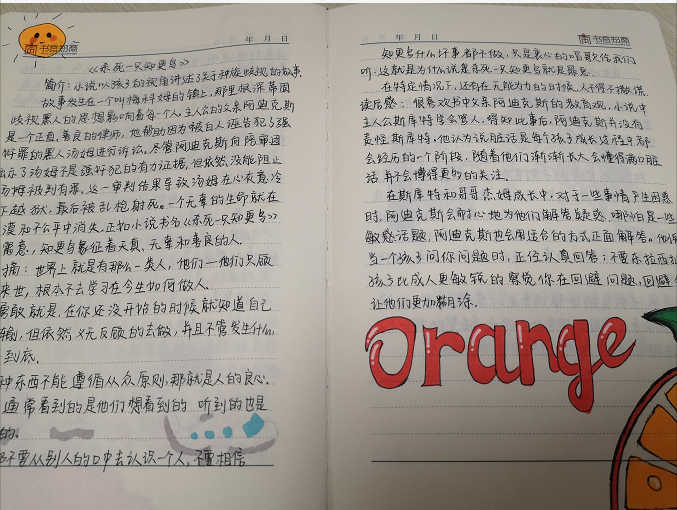 书香知商
年 月 日
《杀死一只知更鸟》
简介:小说以孩子的视角讲述了关于种族歧视的故事.
故事发生在一个叫梅科姆的镇上,那里根深蒂固
歧视黑人的思想影响着每一个人,主人公的父亲阿迪克斯
是一个正直,善良的律师,他帮助因为被白人诬告犯了强
奸罪的黑人汤姆进行诉讼,尽管阿迪克斯向陪审团
出示了汤姆不是强奸犯的有力证据,但依然没能阻止
汤姆被判有罪,这一审判结果导致汤姆在心灰意冷
下越狱,最后被乱枪射死。一个无辜的生命就在
漠和不公平中消失,正如小说书名《杀死一只知更鸟》
寓意,知更鸟象征着天真、无辜和善良的人.
摘:世界上就是有那么一类人,他们一他们只顾
来世,根本不去学习在今生如何做人.
勇敢就是,在你还没开始的时候就知道自己
输,但依然义无反顾的去做,并且不管发生什么
到底.
种东西不能遵循从众原则,那就是人的良心.
通常看到的是他们想看到的 听到的也是
的.
不要从别人的口中去认识一个人,不要相信
年 月 日
书香知商
知更鸟什么坏事都不做,只是衷心的唱歌给我们
听.这就是为什么说是杀死一只知更鸟就是罪恶.
在特定情况下,还有在无能为力的时候,人才得不做错.
读后感:很喜欢书中父亲阿迪克斯的教育观,小说中
主人公斯库特学会骂人,得知此事后,阿迪克斯并没有
责怪斯库特,他认为说脏话是每个孩子成长过程中都
会经历的一个阶段,随着他们渐渐长大会懂得满口脏
话并不会博得更多的关注.
在斯库特和哥哥杰姆成长中,对于一些事情产生困惑
时,阿迪克斯会耐心地为他们解答疑惑,哪怕是一些
敏感话题,阿迪克斯也会用适合的方式正面解答。他说
当一个孩子问你问题时,正位认真回答:不要东拉西扯
孩子比成人更敏锐的察觉你在回避问题,回避
让他们更加糊涂.
Orange